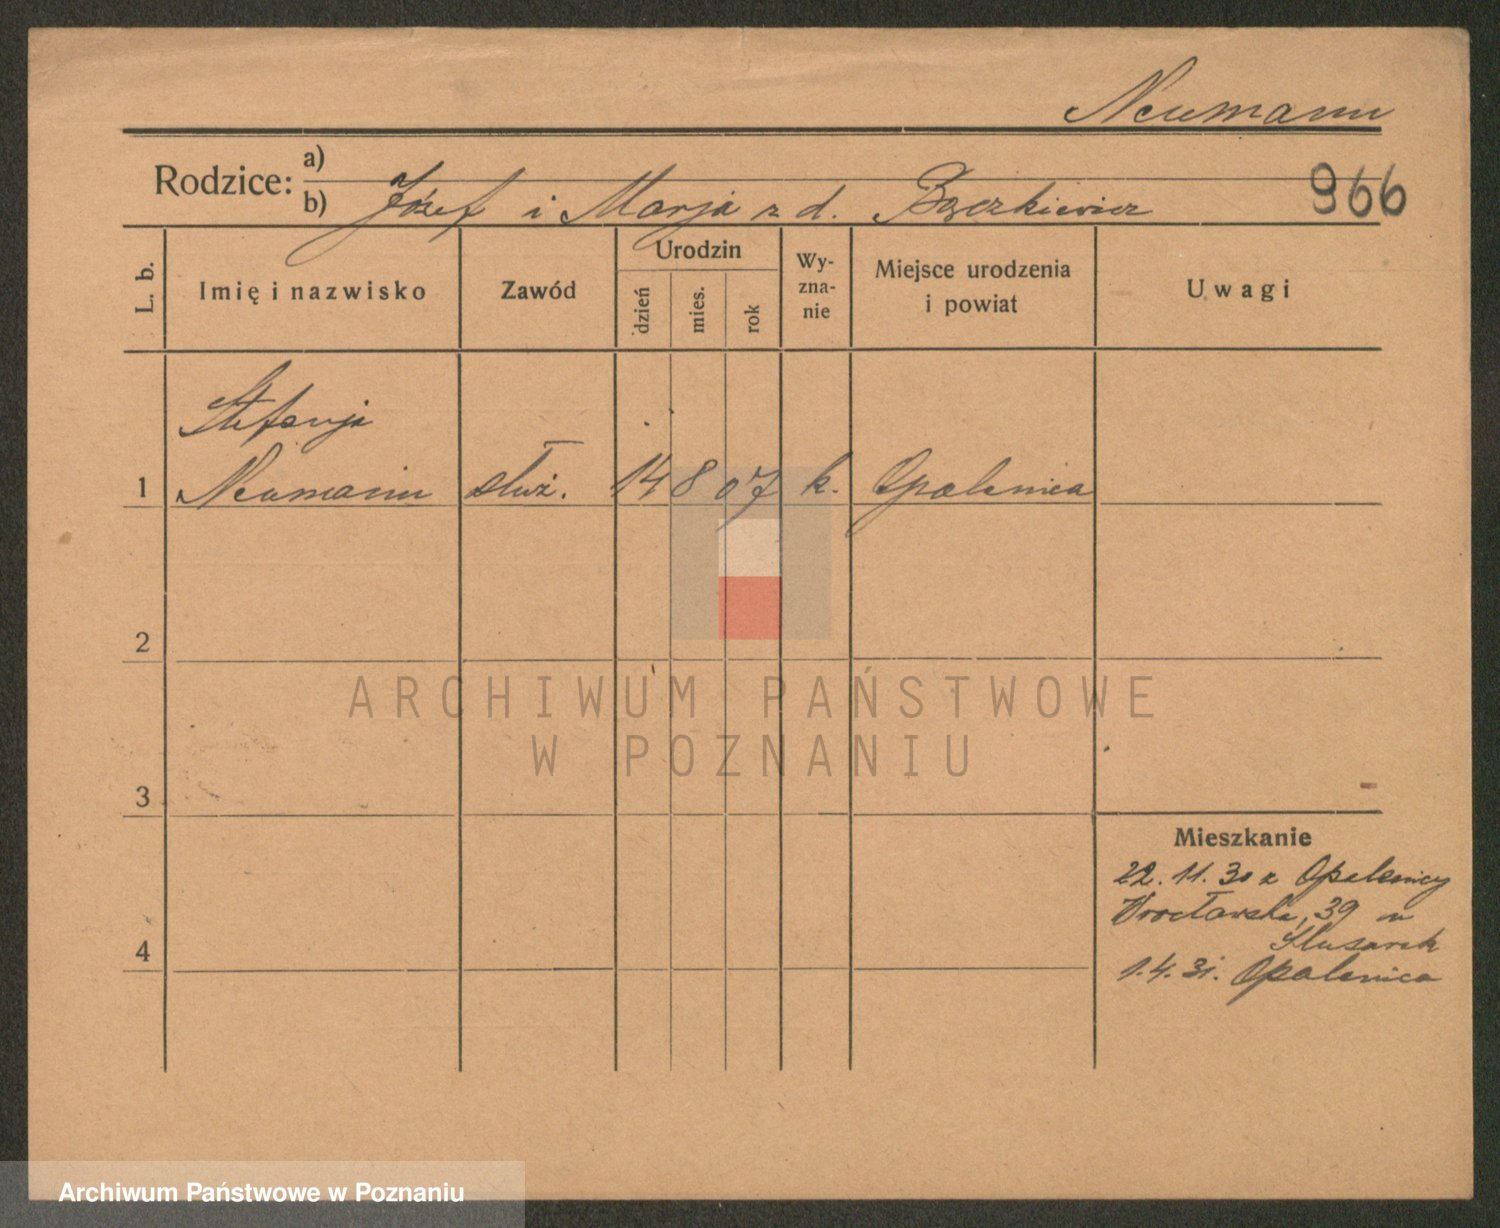 Neumann
Rodzice: a)
b) Józef i Marja z d. Bączkiewicz 966
L. b. Imię i nazwisko Zawód Urodzin dzień mies. rok Wy-zna-nie Miejsce urodzenia i powiat Uwagi
Stefanja
1 Neumann służ. 14 8 07 k. Opalenica
2
ARCHIWUM PAŃSTWOWE
W POZNANIU
3
Mieszkanie
22. 11. 30 z Opalenicy
Wrocławska 39 u
Ślusarek
4
1. 4. 31. Opalenica
Archiwum Państwowe w Poznaniu